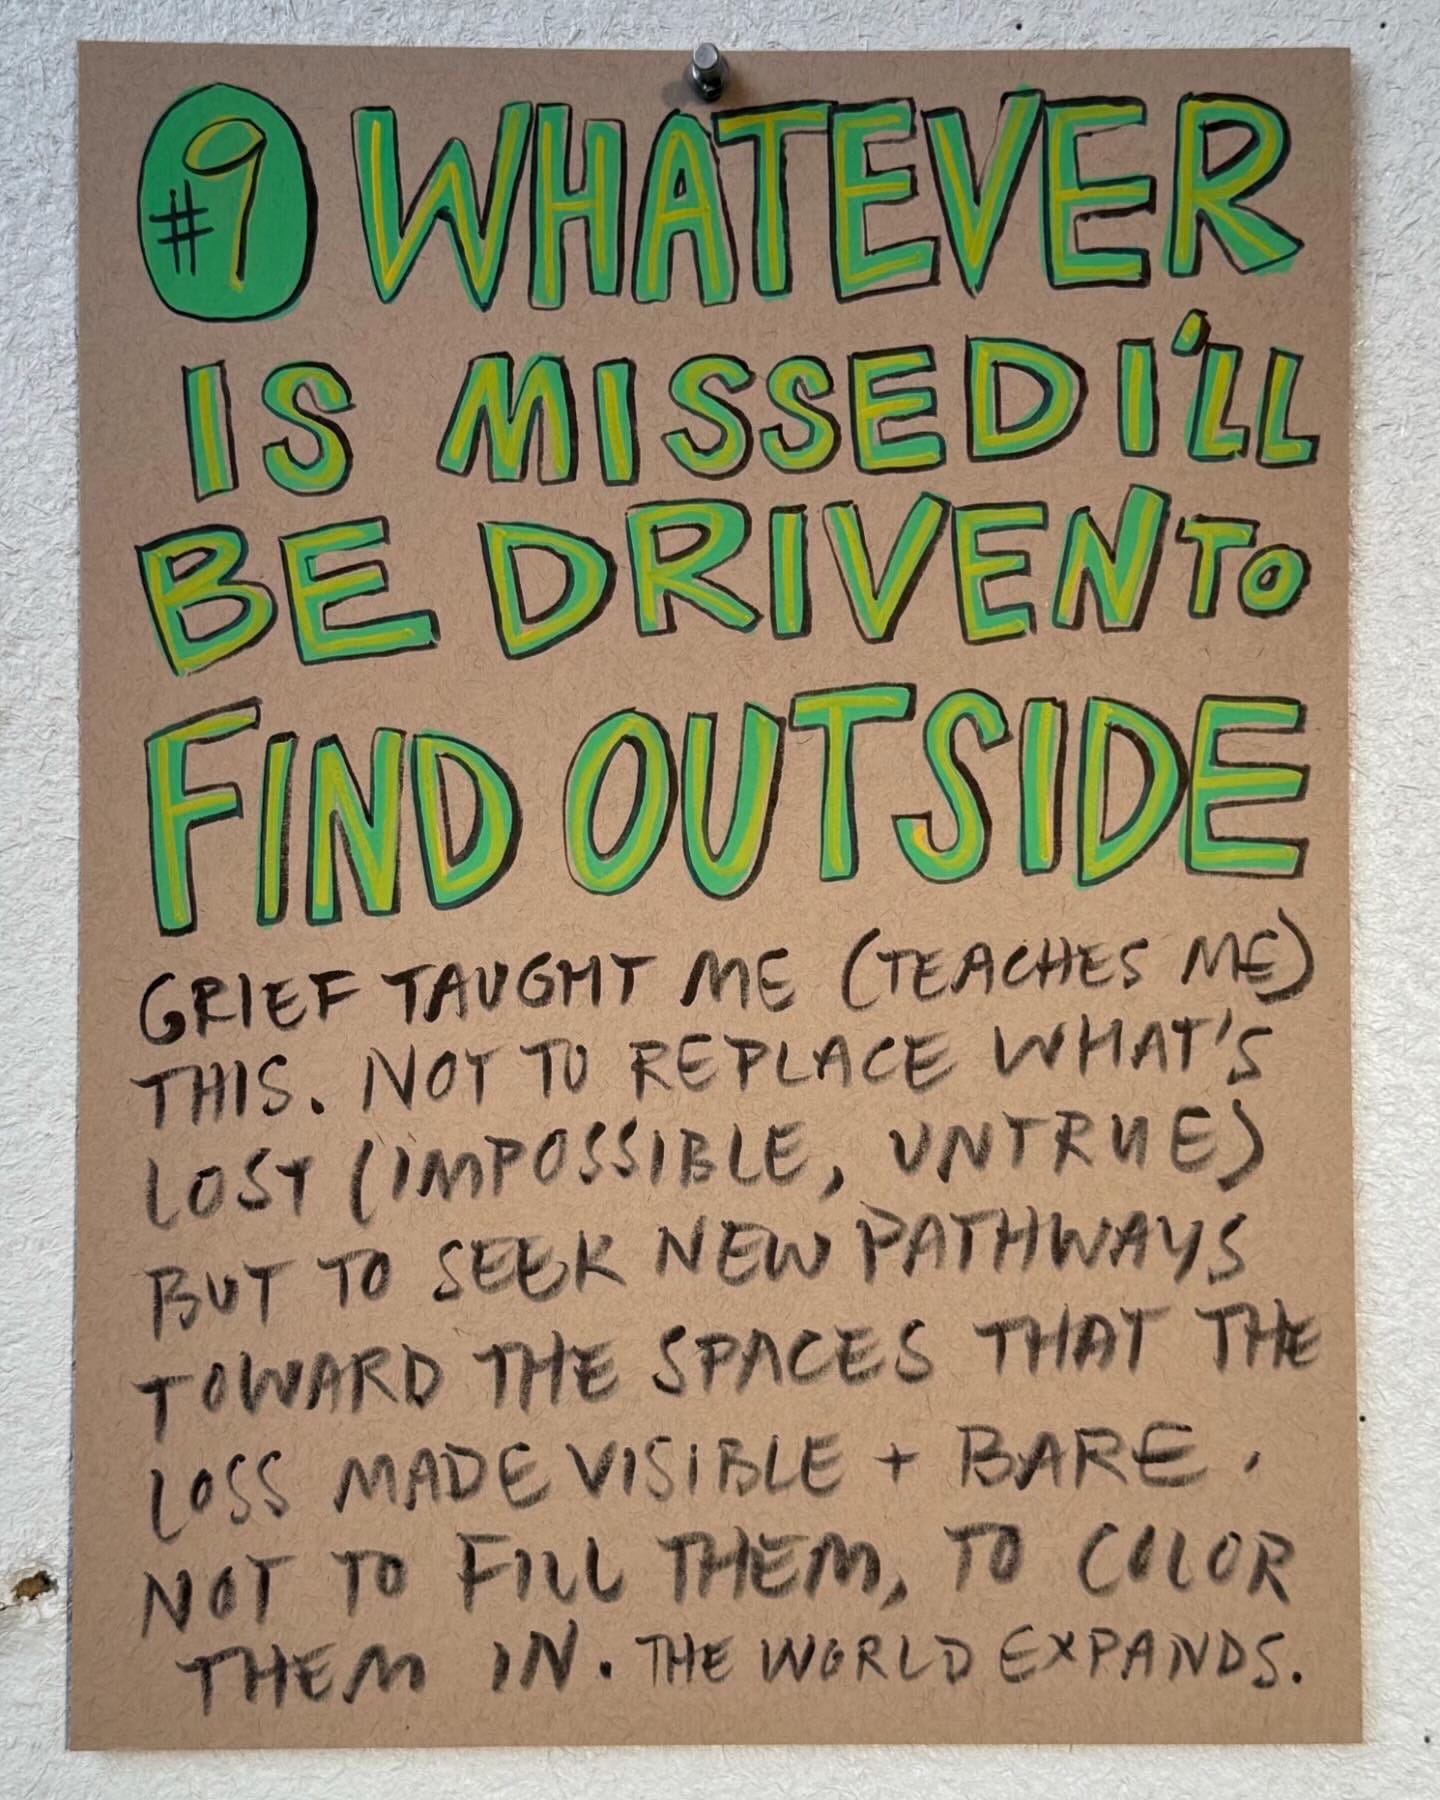 #9 WHATEVER
IS MISSED I'LL
BE DRIVEN TO
FIND OUTSIDE
GRIEF TAUGHT ME (TEACHES ME)
THIS. NOT TO REPLACE WHAT'S
LOST (IMPOSSIBLE, UNTRUE)
BUT TO SEEK NEW PATHWAYS
TOWARD THE SPACES THAT THE
LOSS MADE VISIBLE + BARE.
NOT TO FILL THEM, TO COLOR
THEM IN. THE WORLD EXPANDS.